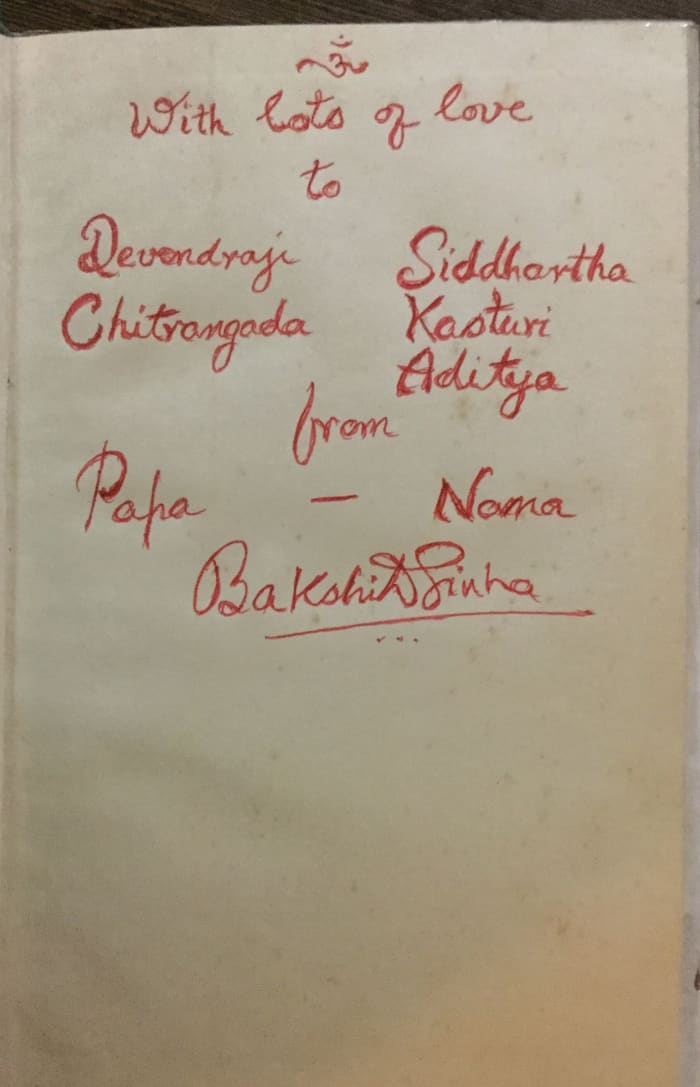 ॐ
With lots of love
to
Devendraji Siddhartha
Chitrangada Kasturi
Aditya
from
Papa — Nana
Bakshi D Sinha
...